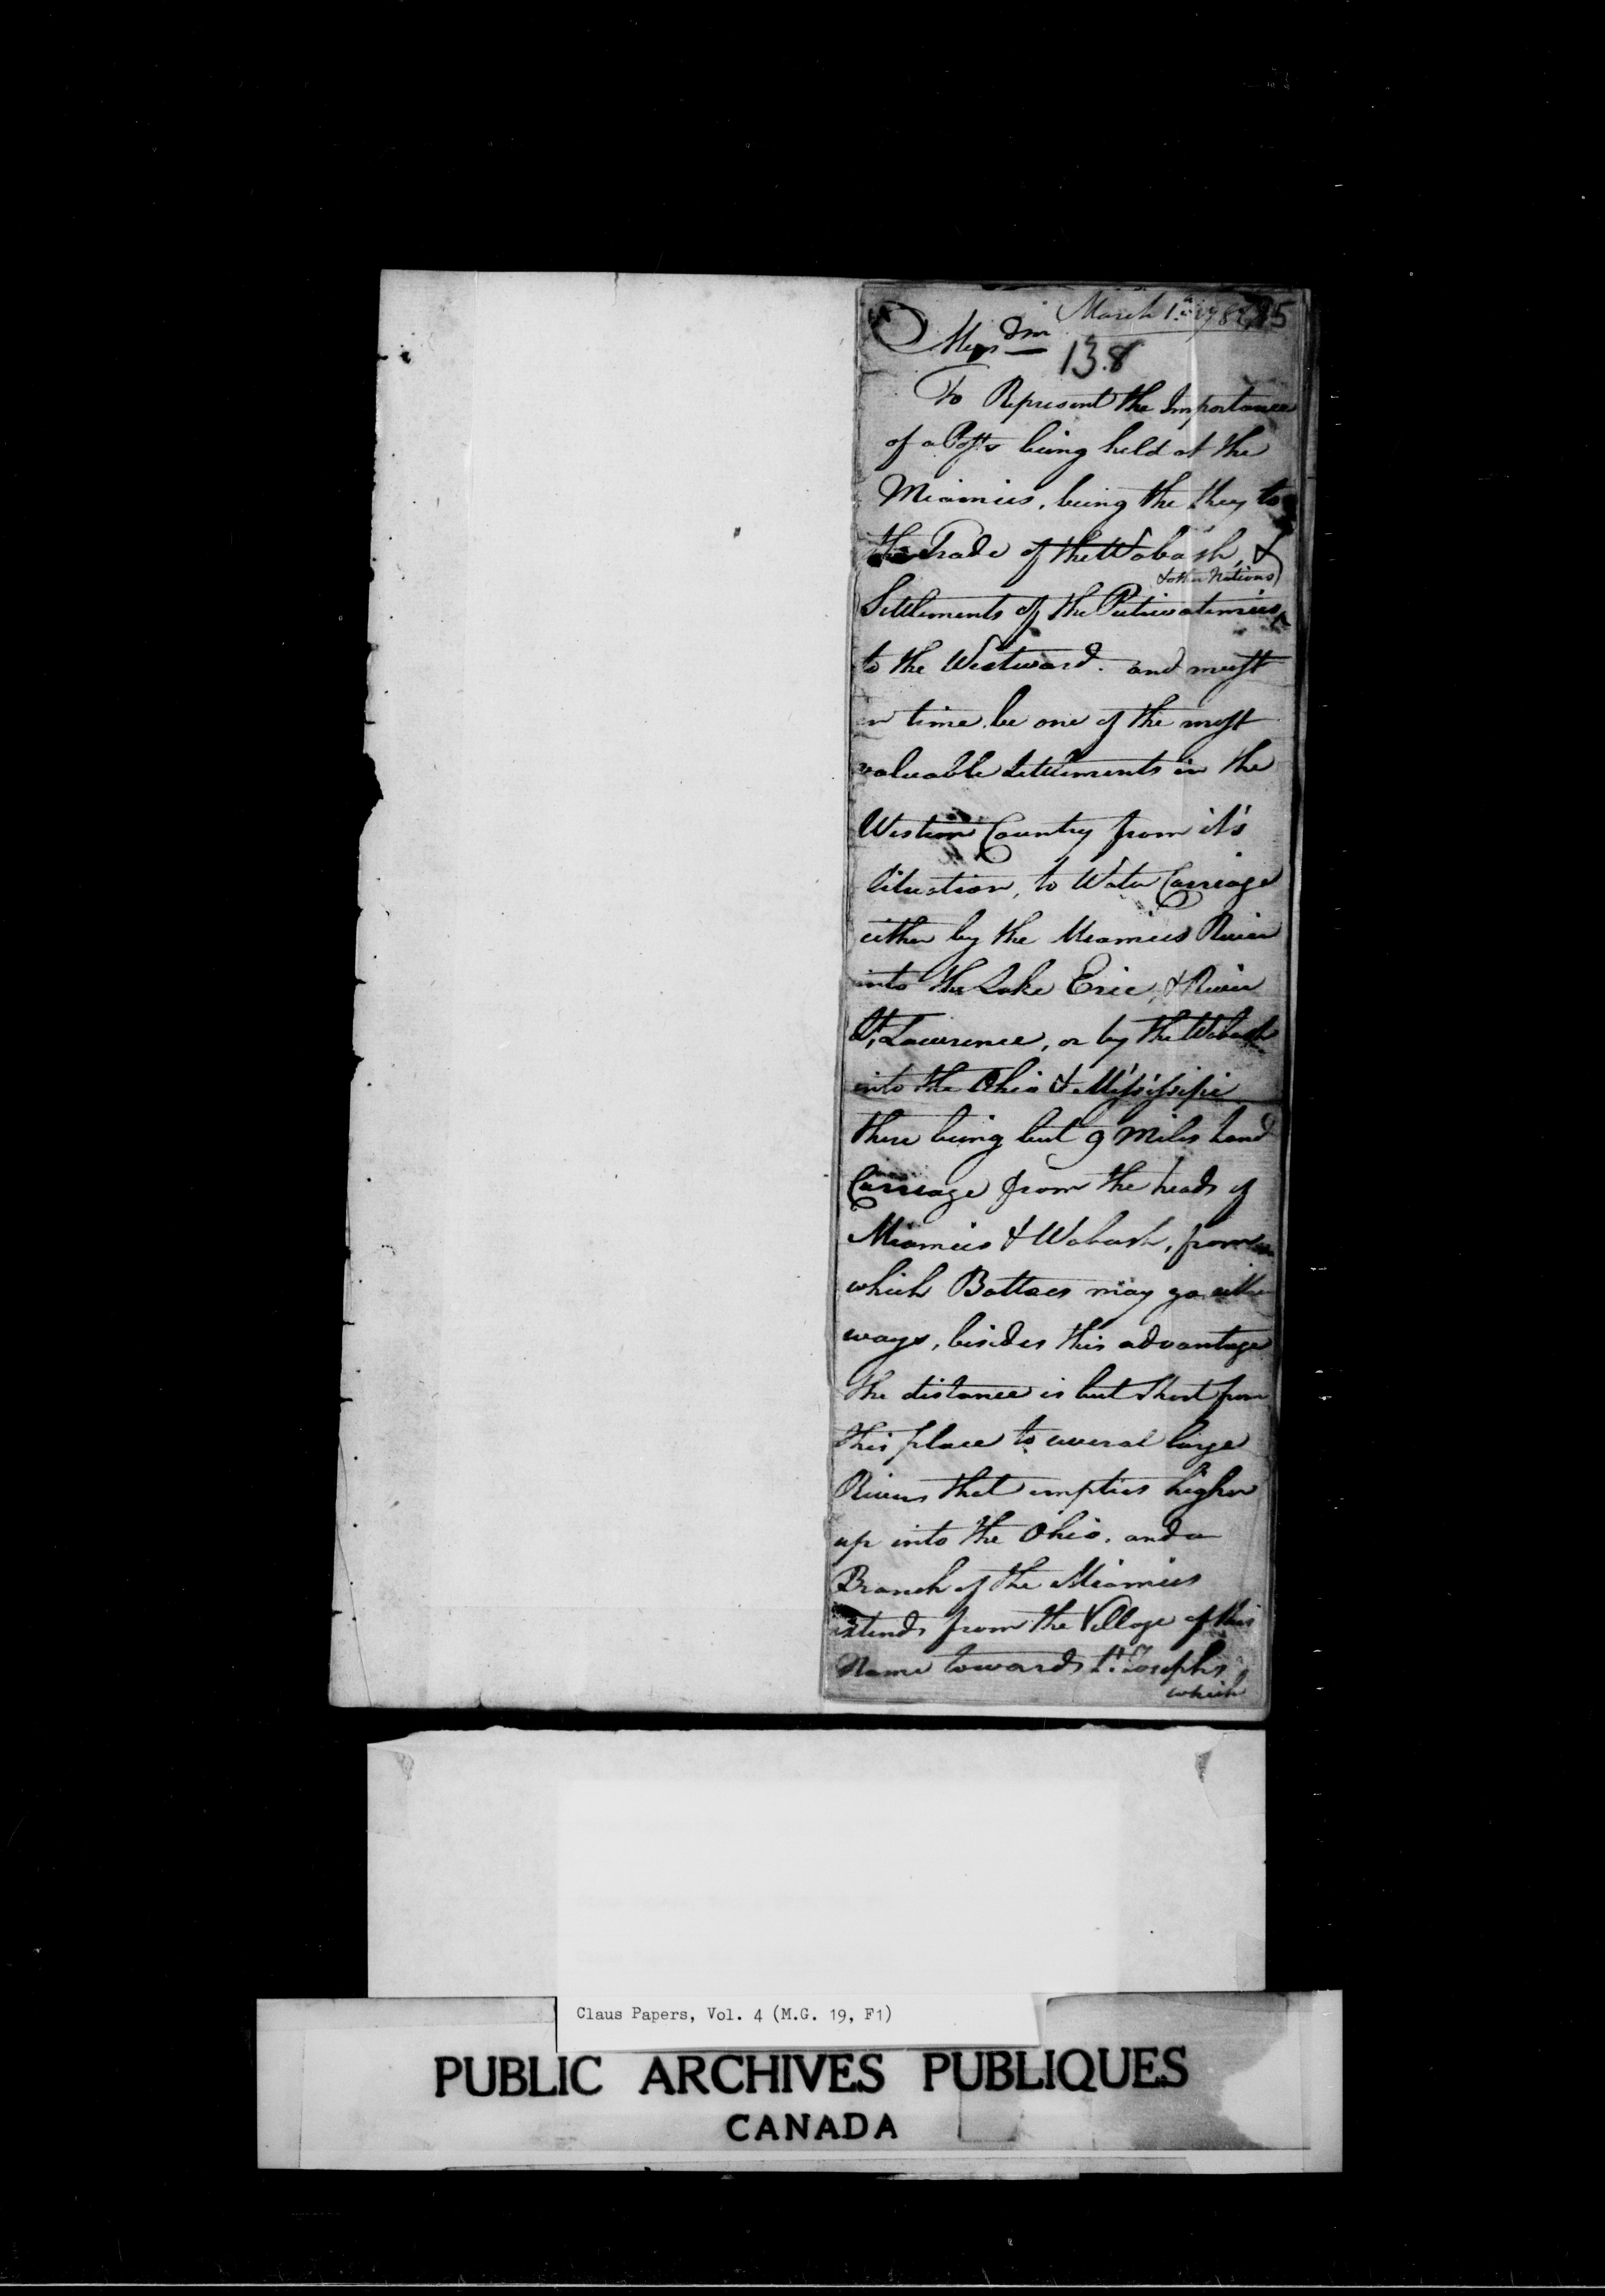 March 1st 178 85
Mem dm
138
To Represent the Importance
of a Post's being held at the
Miamies, being the Key to
the Trade of the Wabash, &
Settlements of the Putiwatemies
& other Nations
to the Westward. and must
in time be one of the most
valuable Settlements in the
Western Country from it's
Situation, to Water Carriage
either by the Miamies River
into the Lake Erie, & River
St. Lawrence, or by the Wabash
into the Ohio & Missisipie
there being but 9 Miles Land
Carriage from the heads of
Miamies & Wabash, from
which Battoes may go either
ways, besides this advantage
the distance is but short from
this place to several large
Rivers that empties higher
up into the Ohio. and a
Branch of the Miamies
extends from the Village of this
Name towards St. Josephs
which
Claus Papers, Vol. 4 (M.G. 19, F1)
PUBLIC ARCHIVES PUBLIQUES
CANADA